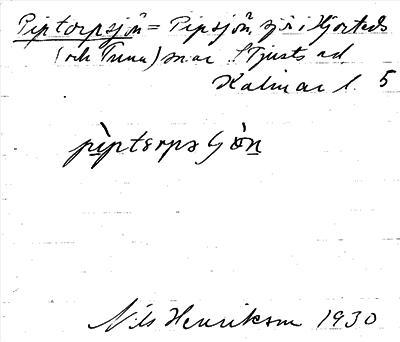 Piptorpsjön = Pipsjön, sjö i Hjorteds
(och Tuna) snar S Tjusts hd
Kalmar l. 5
pìptɛrpsʃö̀n
Nils Henrikson 1930